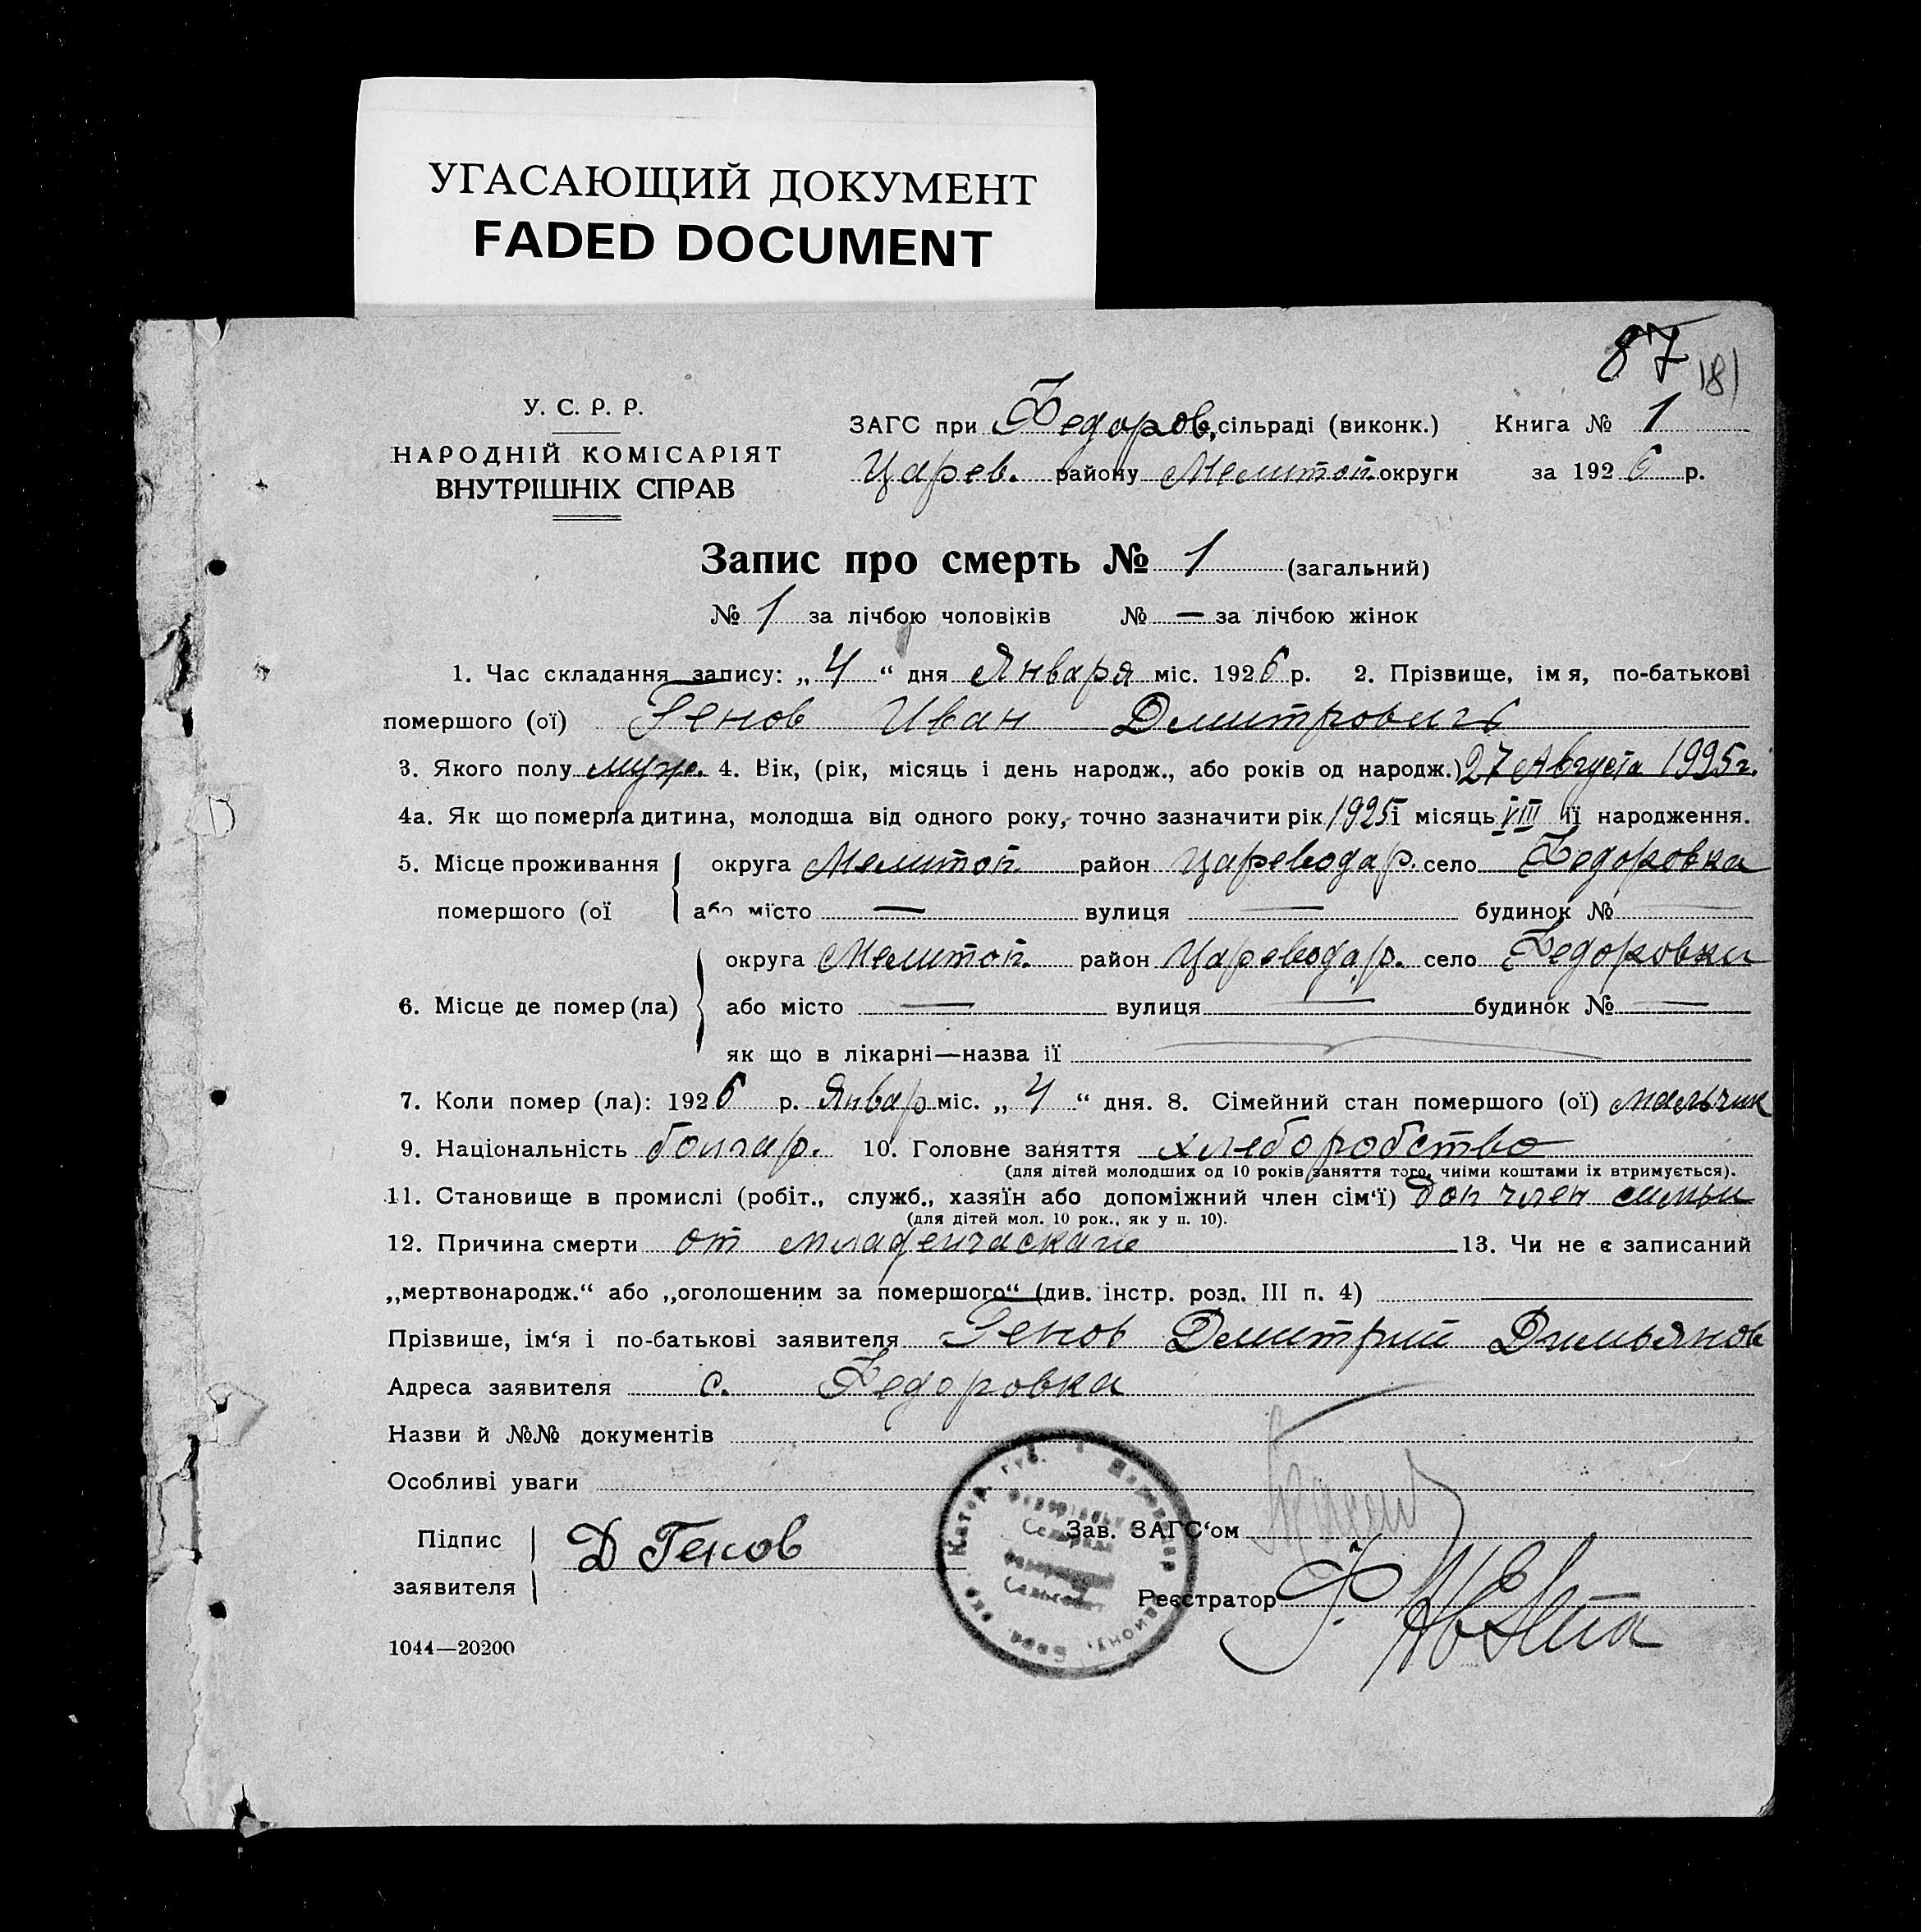 УГАСАЮЩИЙ ДОКУМЕНТ
FADED DOCUMENT
87
181
У. С. Р. Р.
НАРОДНІЙ КОМІСАРІЯТ
ВНУТРІШНІХ СПРАВ
ЗАГС при Федоров, сільраді (виконк.) Книга № 1
Царев. району Мелитоп. округи за 1926 р.
Запис про смерть № 1 (загальний)
№ 1 за лічбою чоловіків № — за лічбою жінок
1. Час складання запису: „4“ дня Января міс. 1926 р. 2. Прізвище, імя, по-батькові
помершого (ої) Генов Иван Дмитрович
3. Якого полу муж. 4. Вік, (рік, місяць і день народж., або років од народж.) 27 Августа 1995 г.
4а. Як що померла дитина, молодша від одного року, точно зазначити рік 1925 і місяць VIII її народження.
5. Місце проживання округа Мелитоп. район Цареводар. село Федоровка
помершого (ої або місто — вулиця — будинок № —
округа Мелитоп. район Цареводар. село Федоровки
6. Місце де помер (ла) або місто — вулиця — будинок № —
як що в лікарні—назва ії
7. Коли помер (ла): 1926 р. Январ міс. „4“ дня. 8. Сімейний стан помершого (ої) мальчик
9. Національність болгар. 10. Головне заняття хлеборобство
(для дітей молодших од 10 років заняття того, чиіми коштами іх втримується).
11. Становище в промислі (робіт., служб., хазяїн або допоміжний член сім‘ї) доп член семьи
(для дітей мол. 10 рок., як у п. 10).
12. Причина смерти от 13. Чи не є записаний
„мертвонародж.“ або „оголошеним за помершого“ (див. інстр. розд. III п. 4)
Прізвише, ім‘я і по-батькові заявителя Генов Дмитрий
Адреса заявителя с. Федоровка
Назви й №№ документів
Особливі уваги
Підпис Д Генов Зав. ЗАГС‘ом
заявителя Реєстратор
1044—20200